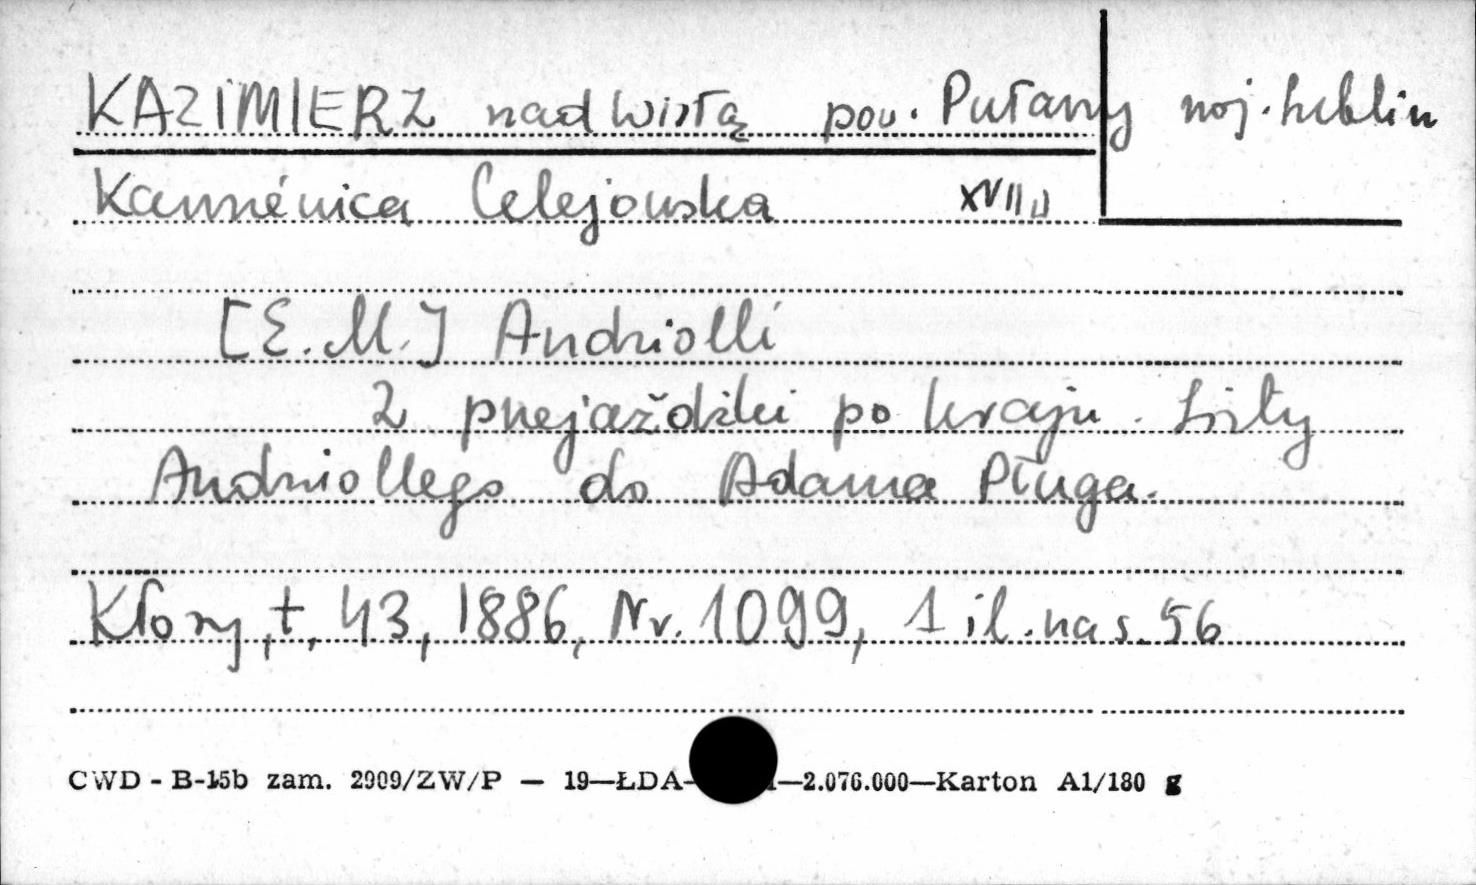 KAZIMIERZ nad Wisłą pow. Puławy woj. Lublin
Kamienica Celejowska XVII w
[E. M.] Andriolli
Z przejażdżki po kraju. Listy
Andriollego do Adama Pługa.
Kłosy, t. 43, 1886, Nr. 1099, 1 il. na s. 56
CWD - B-15b zam. 2909/ZW/P — 19—ŁDA- —2.076.000—Karton A1/180 g